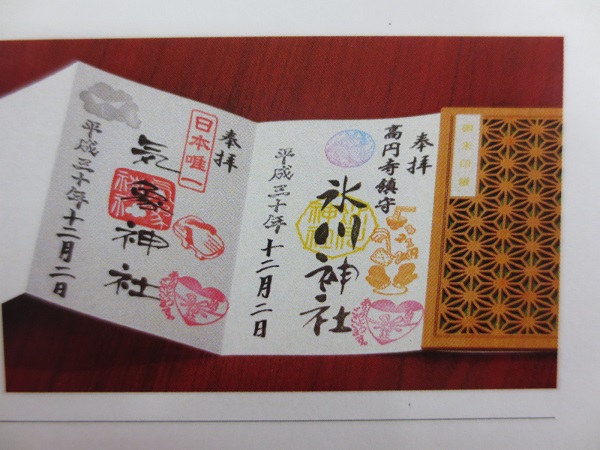 御朱印帳
奉拝
高円寺鎮守
氷川神社
平成三十年十二月二日
奉拝
日本唯一
気象神社
平成三十年十二月二日